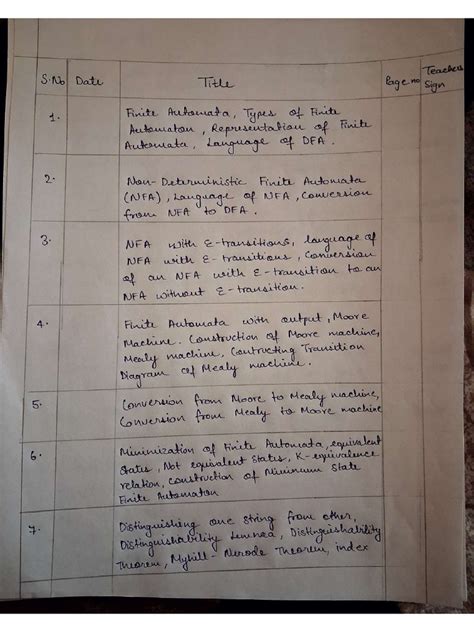 S.No Date Title Page no Teachers Sign
1. Finite Automata, Types of Finite
Automaton, Representation of Finite
Automata, Language of DFA.
2. Non-Deterministic Finite Automata
(NFA), Language of NFA, Conversion
from NFA to DFA.
3. NFA with ε-transitions, language of
NFA with ε-transitions, Conversion
of an NFA with ε-transition to an
NFA without ε-transition.
4. Finite Automata with output, Moore
Machine. Construction of Moore machine,
Mealy machine, Contructing Transition
Diagram of Mealy machine.
5. Conversion from Moore to Mealy machine,
Conversion from Mealy to Moore machine
6. Minimization of Finite Automata, equivalent
States, Not equivalent states, K-equivalence
relation, Construction of Minimum State
Finite Automaton
7. Distinguishing one string from other,
Distinguishability Lemnea, Distinguishability
Theorem, Myhill-Nerode Theorem, index